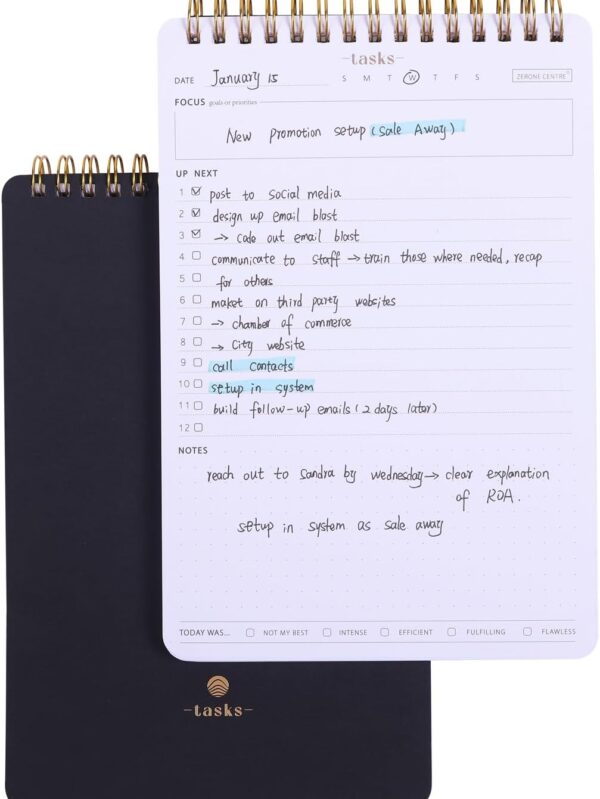 -tasks-
DATE January 15 S M T W T F S ZERONE CENTRE®
FOCUS goals or priorities
New promotion setup (Sale Away)
UP NEXT
1 post to social media
2 design up email blast
3 → code out email blast
4 communicate to staff → train those where needed, recap
5 for others
6 maket on third party websites
7 → chamber of commerce
8 → City website
9 call contacts
10 setup in system
11 build follow-up emails (2 days later)
12
NOTES
reach out to Sandra by wednesday → clear explanation
of ROA.
setup in system as sale away
TODAY WAS... NOT MY BEST INTENSE EFFICIENT FULFILLING FLAWLESS
-tasks-